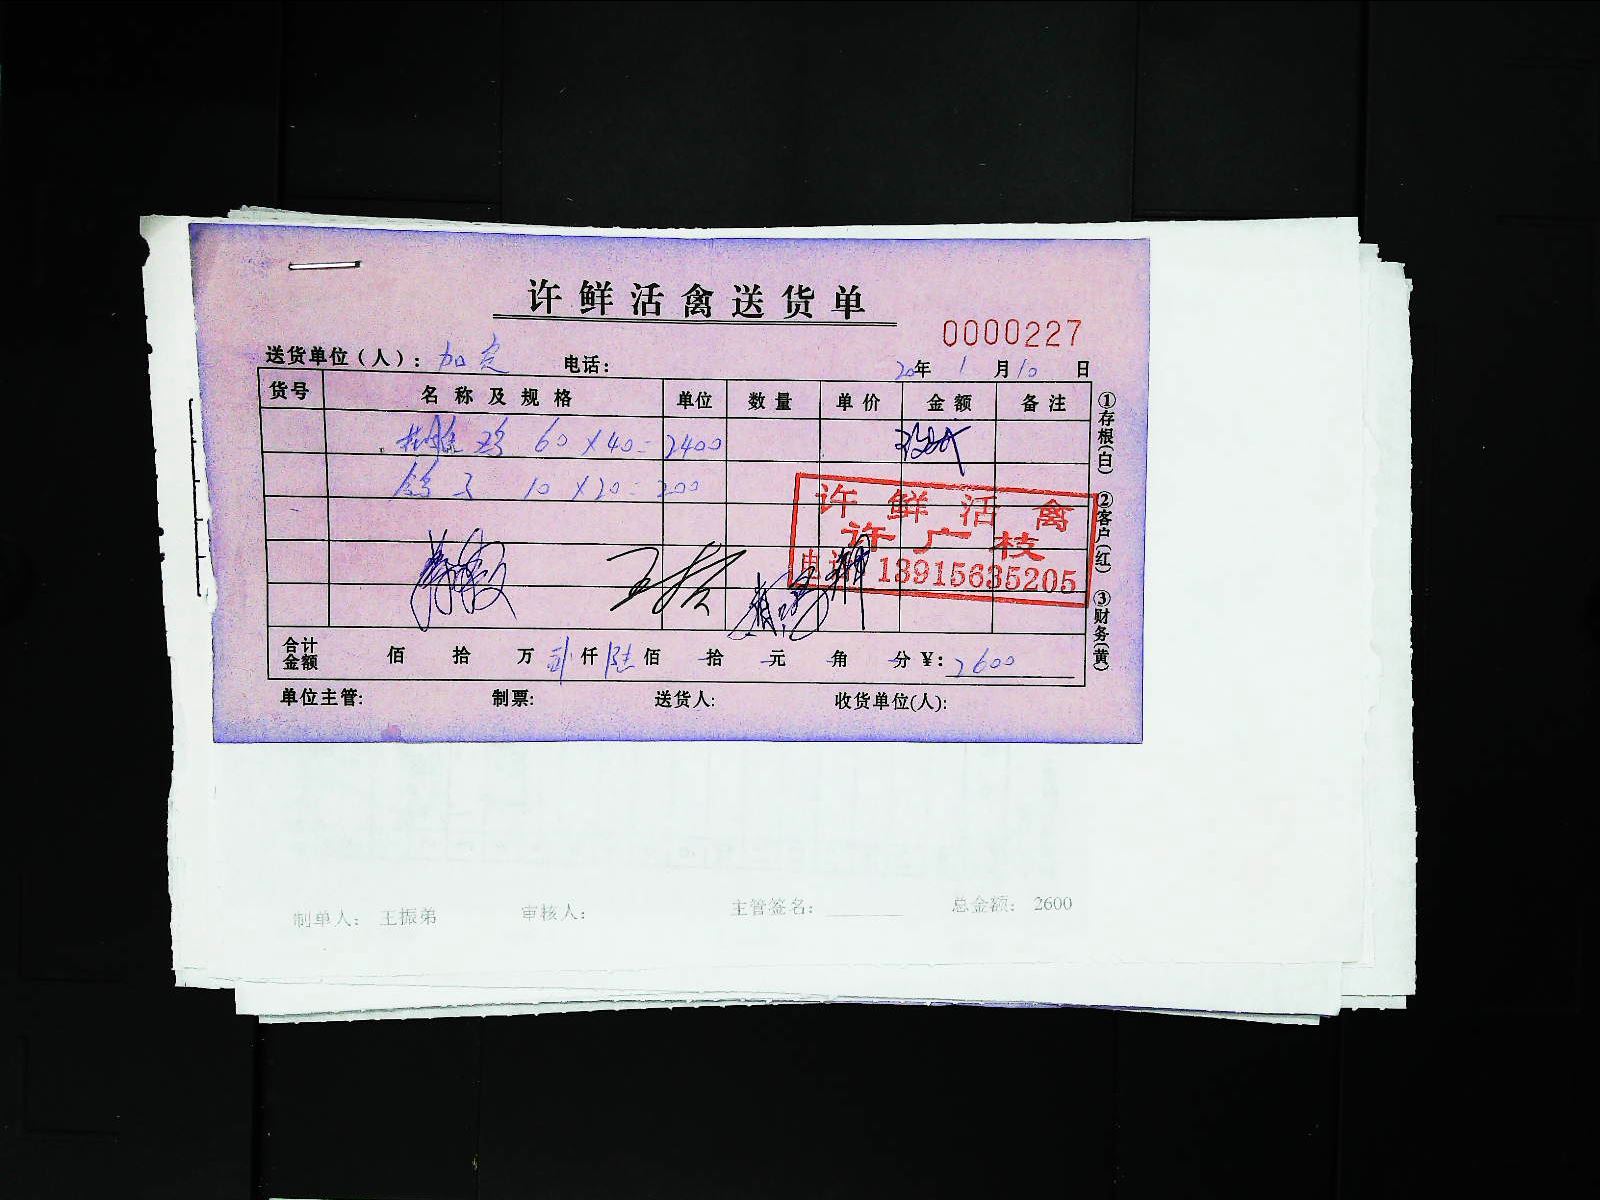 许鲜活禽送货单
0000227
送货单位(人): 加定 电话: 20年 1 月 10 日
货号 名称及规格 单位 数量 单价 金额 备注
鸡 60×40=2400
鸽子 10×20=200
许鲜活禽
许广枝
电话 13915635205
合计金额 佰 拾 万 贰仟陆佰 拾 元 角 分 ¥: 2600
单位主管: 制票: 送货人: 收货单位(人):
①存根(白) ②客户(红) ③财务(黄)
制单人: 王振弟 审核人: 主管签名: 总金额: 2600